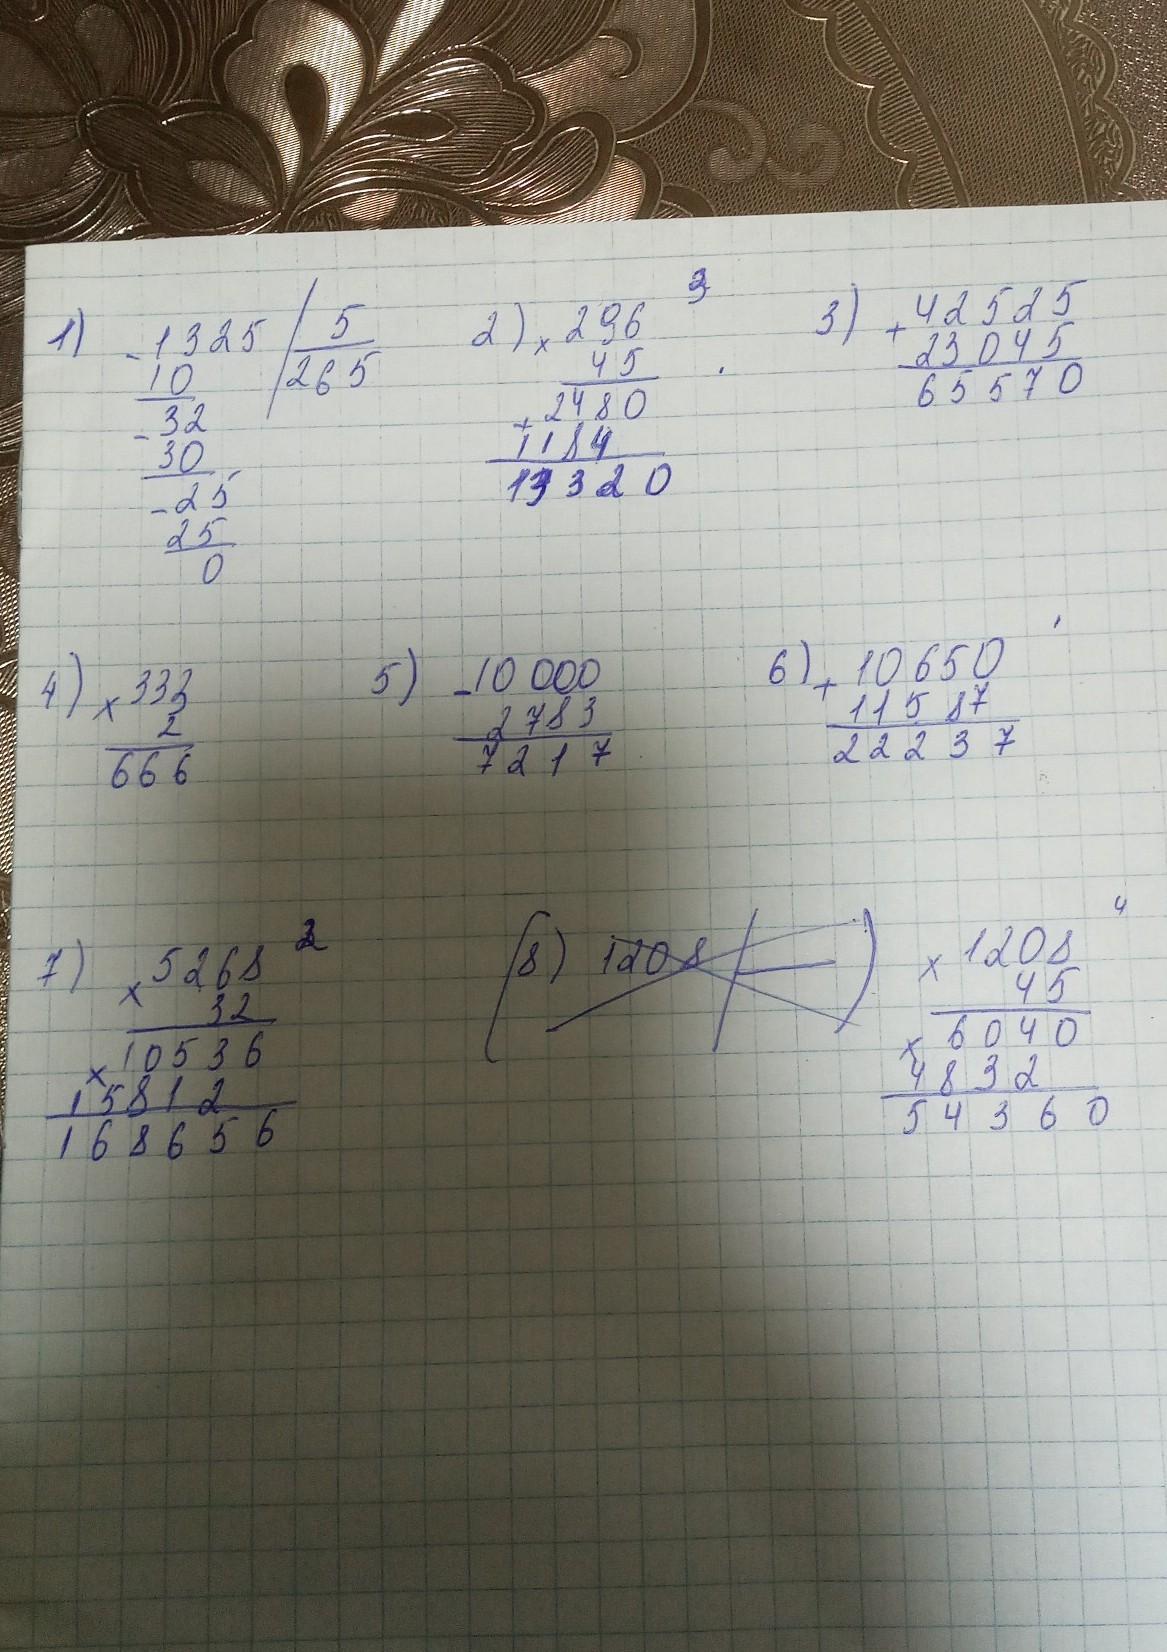 1) - 1325 / 5
10 265
- 32
30
- 25
25
0
2) x 296 3
45
2480
+ 1184
13320
3) + 42525
23045
65570
4) x 333
2
666
5) - 10 000
2783
7217
6) + 10650
11587
22237
7) x 5268 2
32
x 10536
15812
168656
(8) 1208 )
x 1208 4
45
x 6040
4832
54360